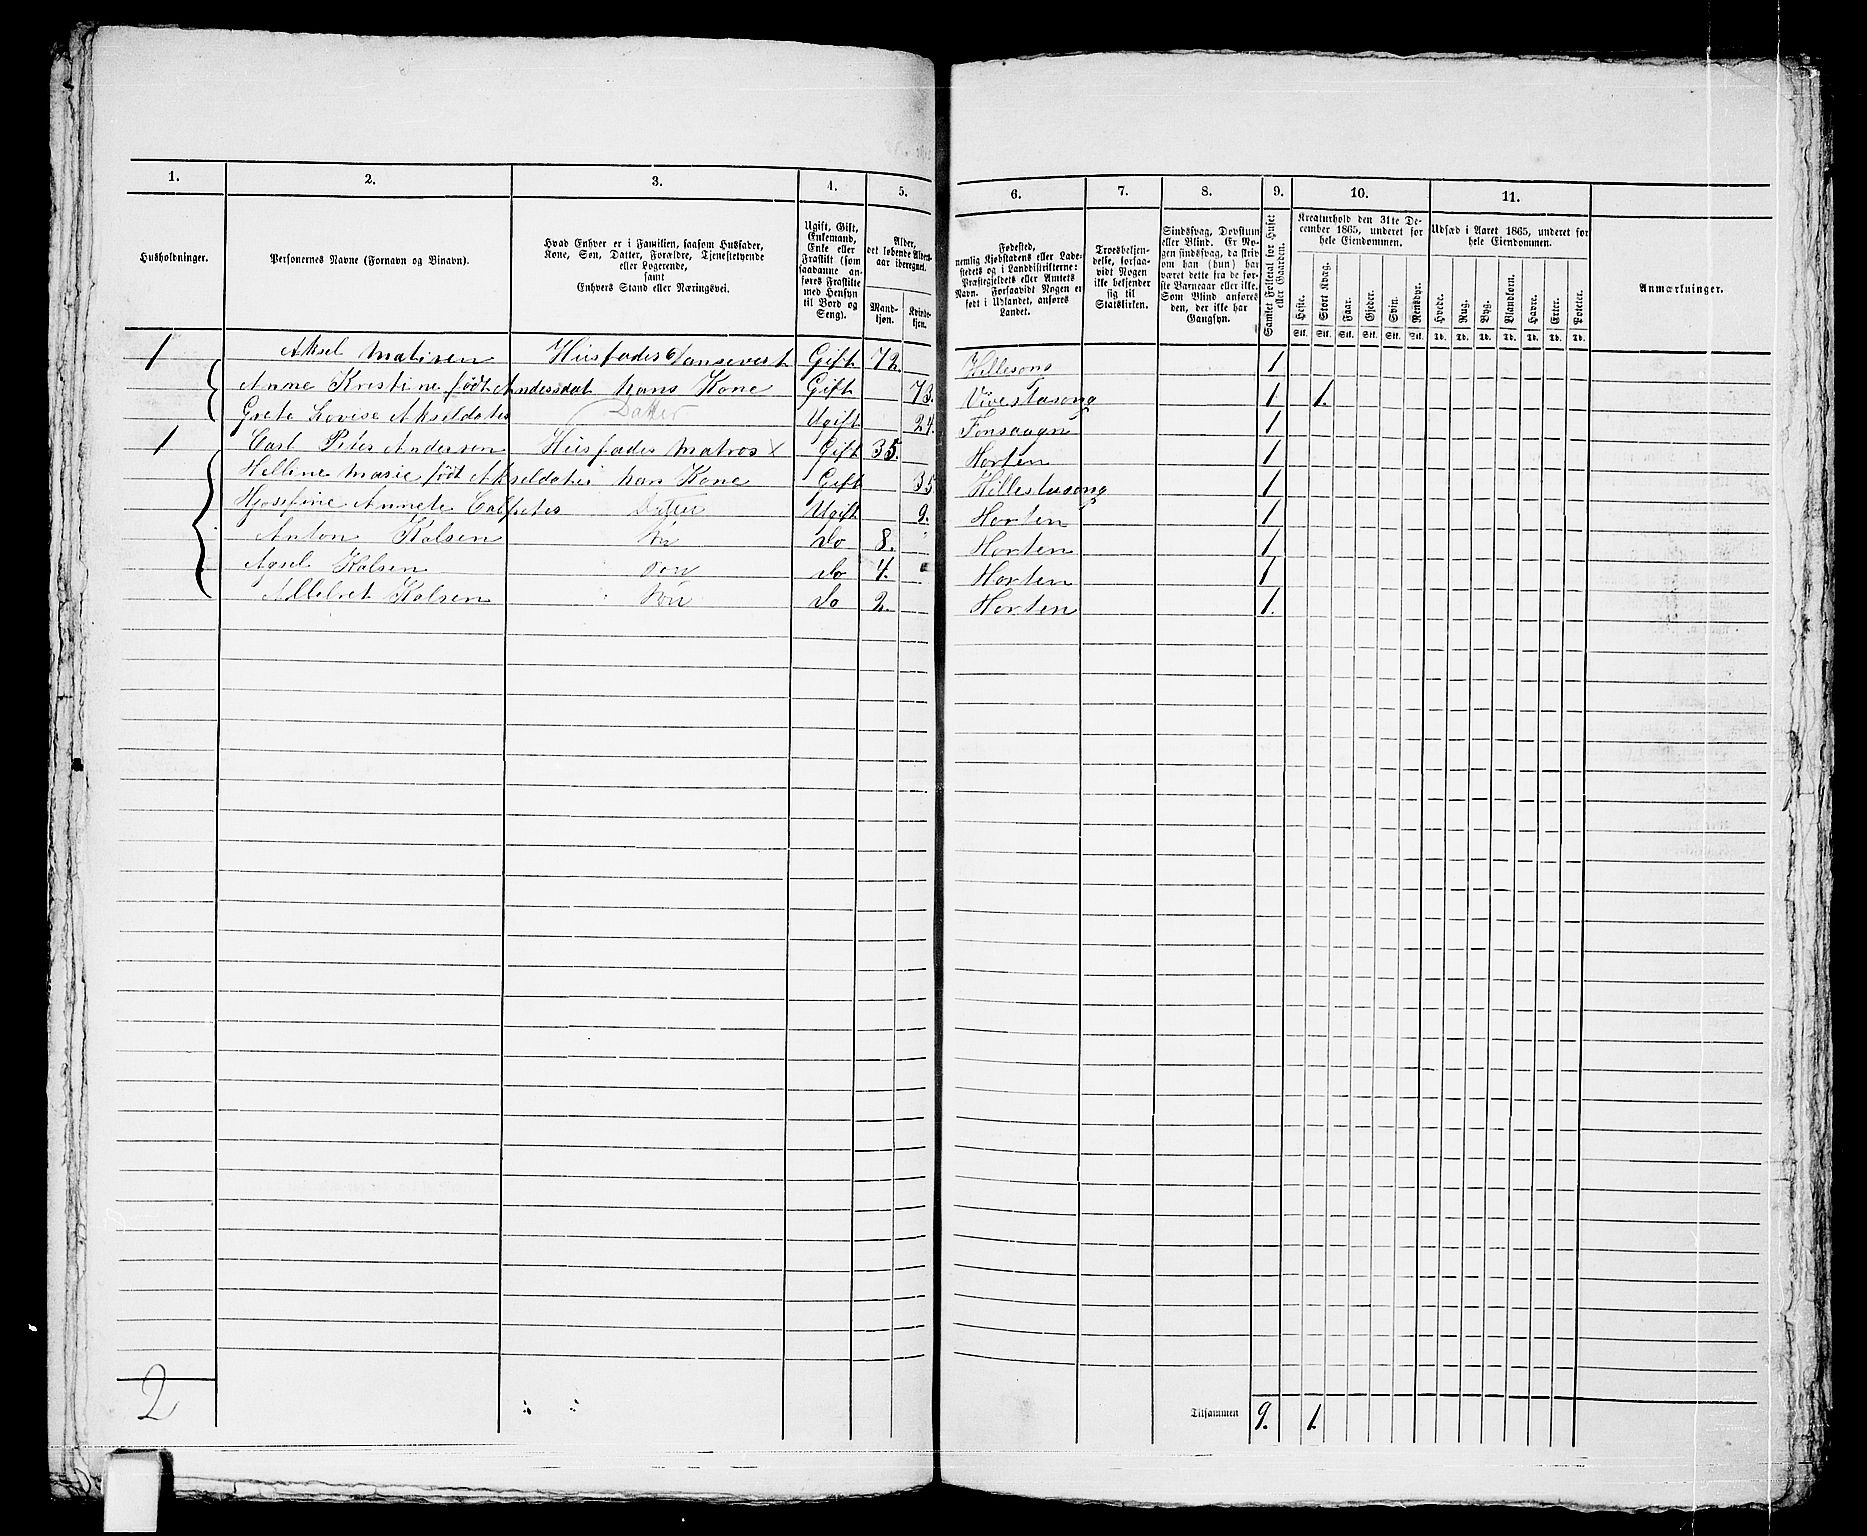 1. 2. 3. 4. 5. 6. 7. 8. 9. 10. 11.
Husholdninger.
Personernes Navne (Fornavn og Binavn).
Hvad Enhver er i Familien, saasom Husfader,
Kone, Søn, Datter, Forældre, Tjenestetyende
eller Logerende,
samt
Enhvers Stand eller Næringsvei.
Ugift, Gift,
Enkemand,
Enke eller
Fraskilt (som
saadanne an-
føres Fraskilte
med Hensyn
til Bord og
Seng).
Alder,
det løbende Alders-
aar iberegnet.
Mand-
kjøn.
Kvinde-
kjøn.
Fødested,
nemlig Kjøbstadens eller Lade-
stedets og i Landdistrikterne:
Præstegjeldets eller Amtets
Navn. Forsaavidt Nogen er
født i Udlandet, anføres
Landet.
Troesbekjen-
delse, forsaa-
vidt Nogen
ikke bekjender
sig til
Statskirken.
Sindssvag, Døvstum
eller Blind. Er No-
gen sindssvag, da skriv
om han (hun) har
været dette fra de før-
ste Barneaar eller ikke.
Som Blind anføres
den, der ikke har
Gangsyn.
Samlet Folketal for Huset
eller Gaarden.
Kreaturhold den 31te De-
cember 1865, underet for
hele Eiendommen.
Heste. Stort Kvæg. Faar. Gjeder. Svin. Rensdyr.
Stk. Stk. Stk. Stk. Stk. Stk.
Udsæd i Aaret 1865, underet for
hele Eiendommen.
Hvede. Rug. Byg. Blandkorn. Havre. Erter. Poteter.
Td. Td. Td. Td. Td. Td. Td.
Anmærkninger.
1 Aksel Matisen Husfader Gift 72. 1
Anne Kristine født Andersdat hans Kone Gift 73. 1 1.
Grete Lovise Akseldater Datter Ugift 24. 1
1 Carl Peter Andersen Husfader Matros x Gift 35. Horten 1
Hellene Marie født Akseldater hans Kone Gift 35 1
Annete Datter Ugift 9. Horten 1
Anton Kalsen Søn Do 8. Horten 1
Agsel Kalsen Søn Do 4. Horten 1
Kalsen Søn Do 2. Horten 1.
2
Tilsammen 9. 1.